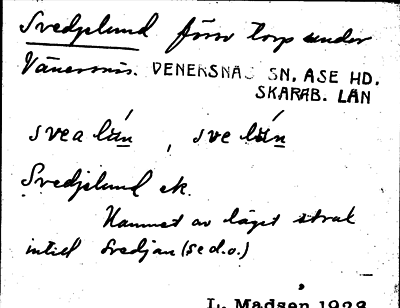 Svedjelund förr torp under
Vänersnäs. VENERSNÄS SN, ÅSE HD.
SKARAB. LÄN
svea lún, sve lún
Svedjelund ek.
Namnet av läget strax
intill Svedjan (se d.o.)
L. Madsen 1923